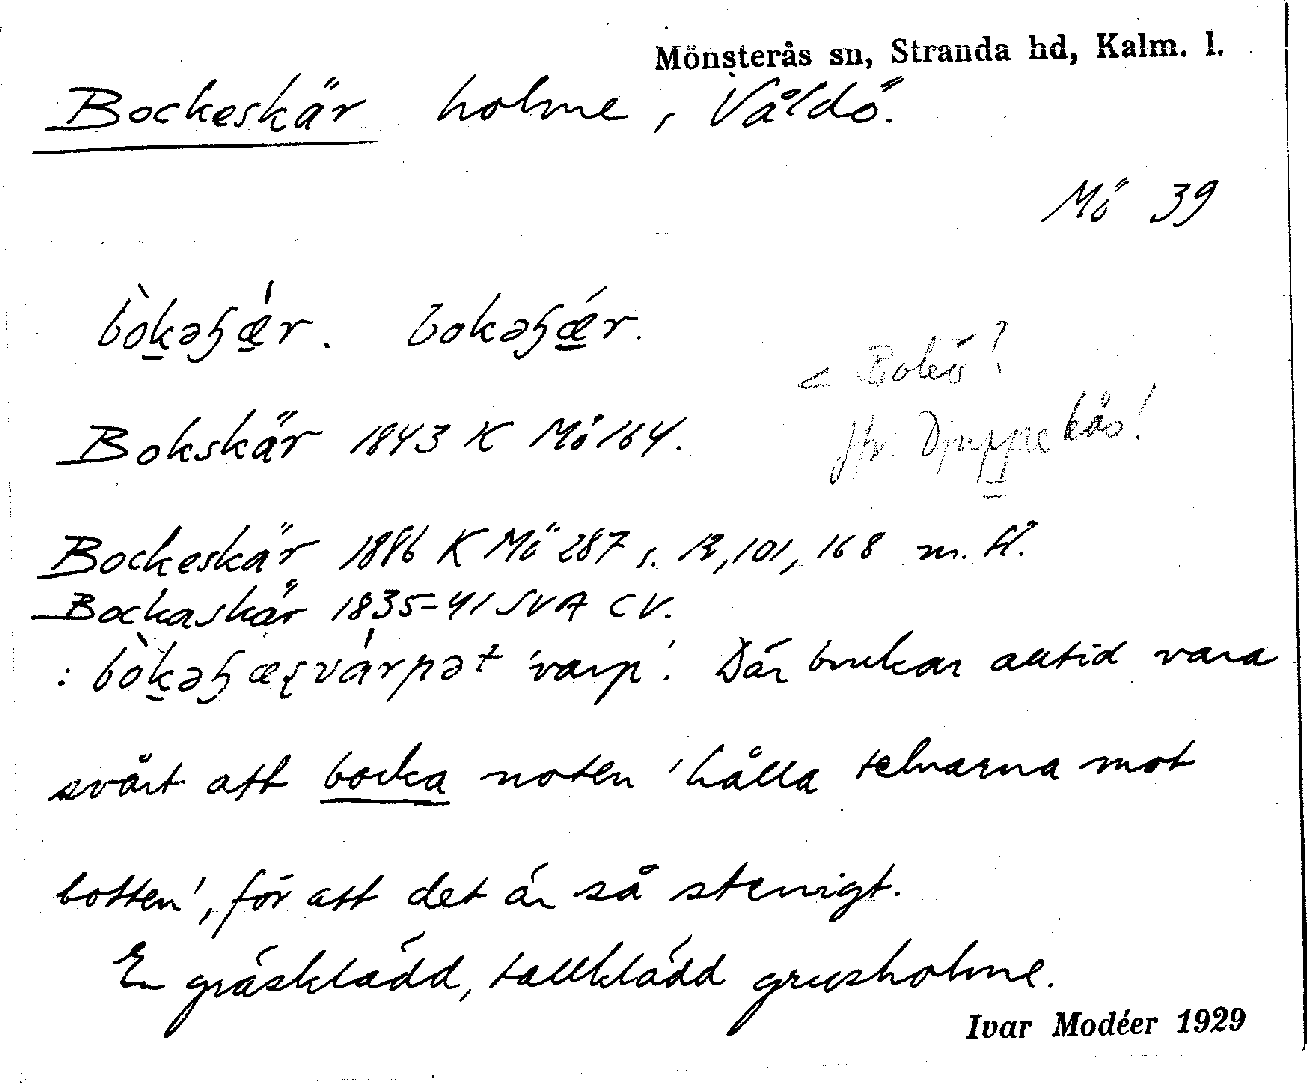 Mönsterås sn, Stranda hd, Kalm. l.
Bockeskär holme, Våldö.
Mö 39
bòkəɧǽr. bokəɧǽr.
< Bokö?
Bokskär 1843 K Mö 164.
jfr. Djuppekås!
Bockeskär 1886 K Mö 287 s. 12, 101, 168 m. fl.
Bockaskär 1835-41 SVA CV.
: bòkəɧæʂvárpət 'varp'. Där brukar alltid vara
svårt att bocka noten 'hålla telnarna mot
botten', för att det är så stenigt.
En gräsklädd, tallklädd grusholme.
Ivar Modéer 1929